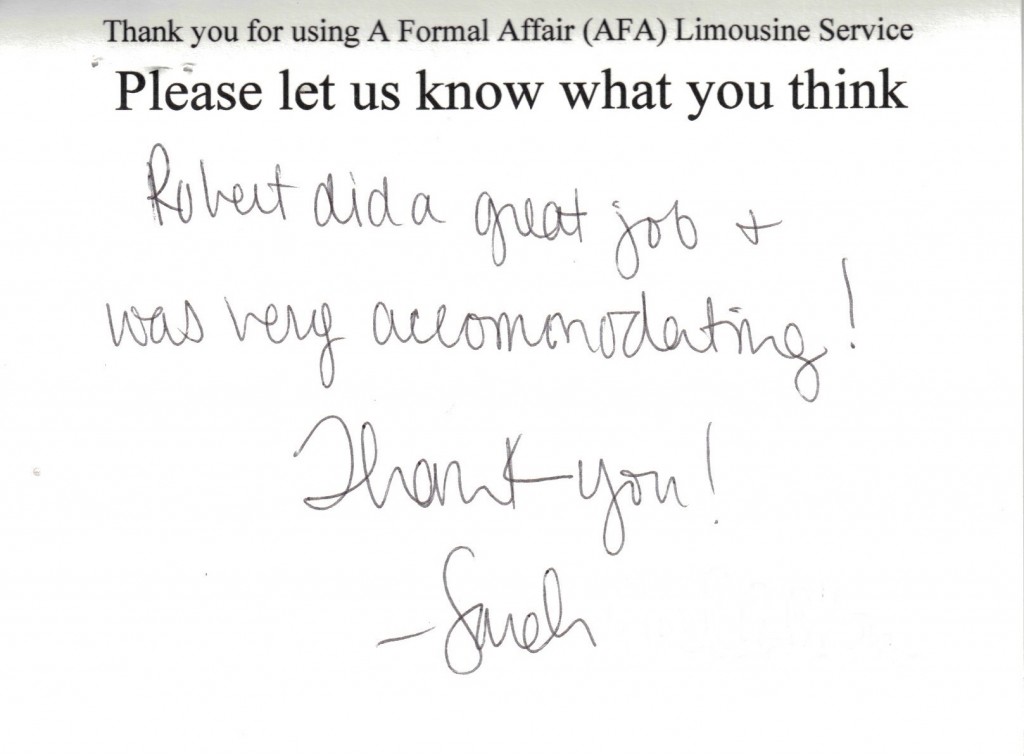 Thank you for using A Formal Affair (AFA) Limousine Service
Please let us know what you think
Robert did a great job +
was very accommodating!
Thank you!
- Sarah